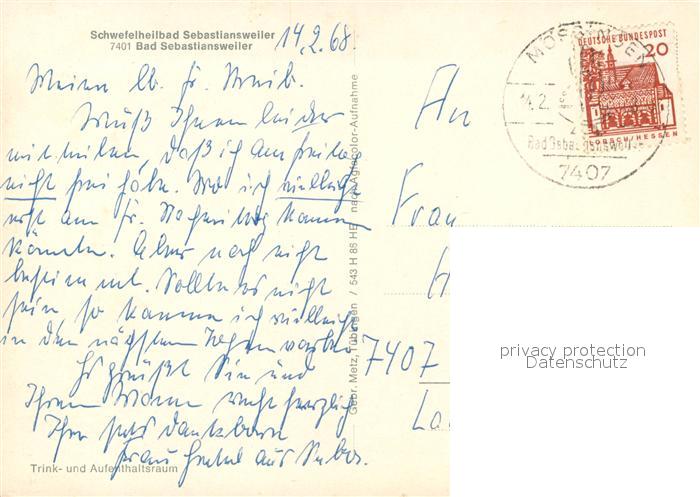 Schwefelheilbad Sebastiansweiler
7401 Bad Sebastiansweiler
14.2.68.
Meine lb. Fr.
Muß Ihnen leider
mitteilen, daß ich am Freitag
nicht frei habe. Wo ich vielleicht
erst am Fr. Nachmittag kommen
könnte. Aber noch nicht
bestimmt. Sollte es nicht
sein so komme ich vielleicht
in den nächsten Tagen vorbei
Es grüßt Sie und
Ihren Mann recht herzlich
Ihre stets dankbare
Frau aus
Trink- und Aufenthaltsraum
Gebr. Metz, Tübingen / 543 H 86 HE nach Agfacolor-Aufnahme
An
Frau
7407
MÖSSINGEN
14.2.
Bad Sebastiansweiler
7407
DEUTSCHE BUNDESPOST
20
LORSCH/HESSEN
privacy protection
Datenschutz